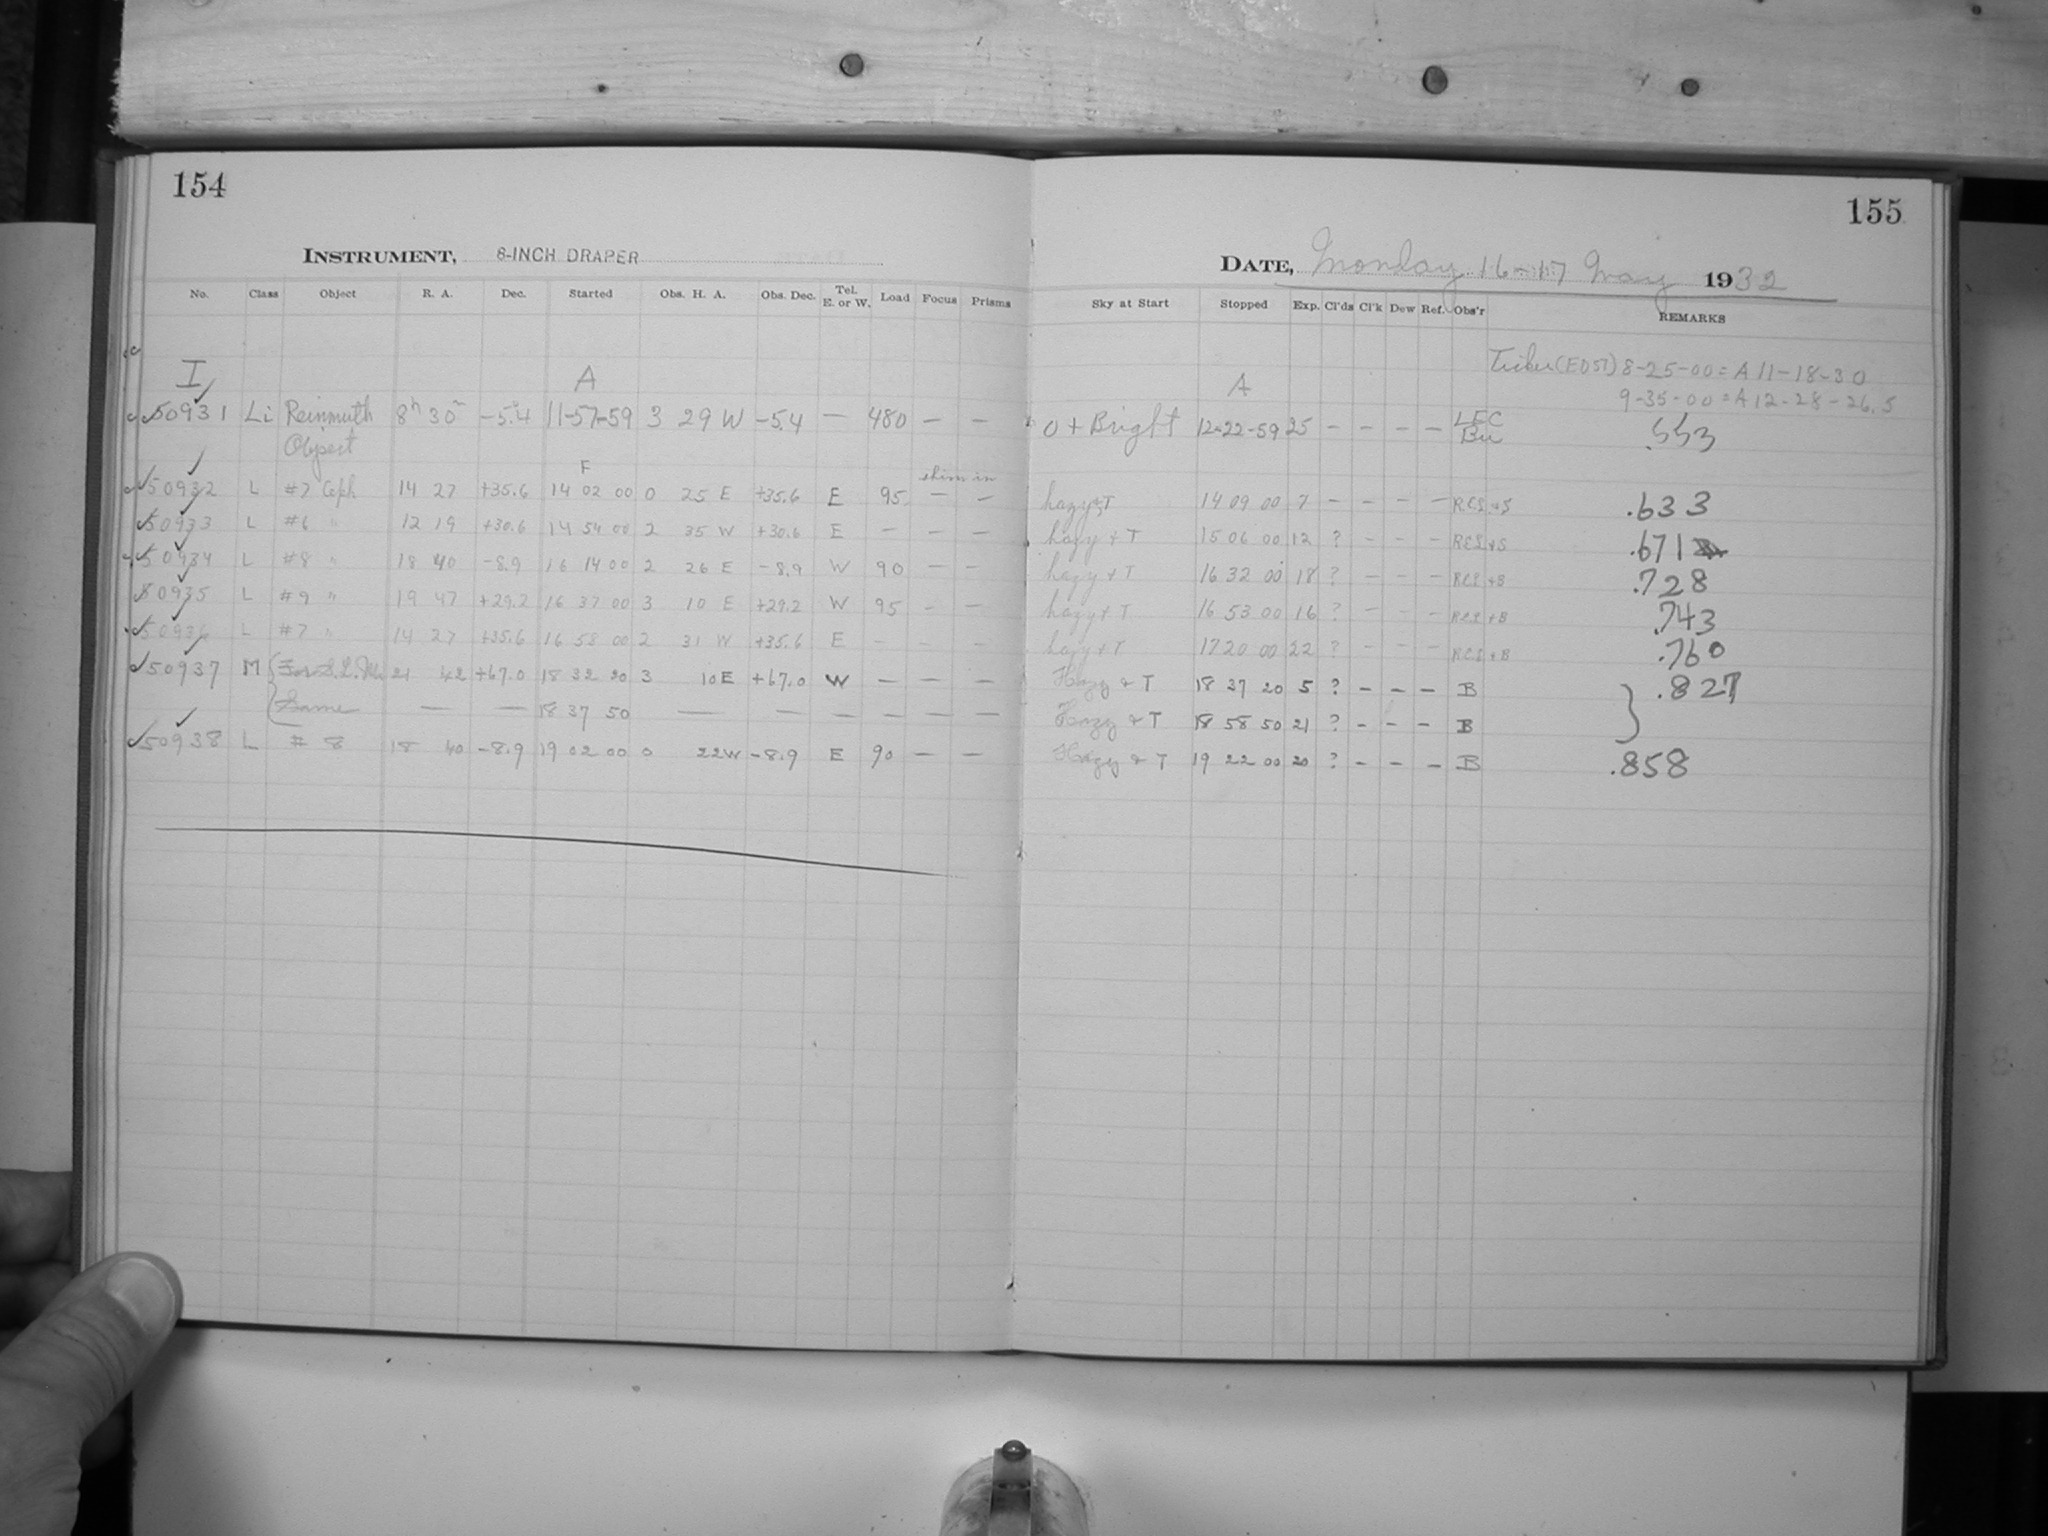 154
INSTRUMENT, 8-INCH DRAPER
No. Class Object R. A. Dec. Started Obs. H. A. Obs. Dec. Tel. E. or W. Load Focus Prisms
I A
50931 Li Reinmuth Object 8h 30m -5.4 11-57-59 3 29 W -5.4 — 480 — —
F shim in
50932 L #7 Ceph 14 27 +35.6 14 02 00 0 25 E +35.6 E 95 — —
50933 L #6 " 12 19 +30.6 14 54 00 2 35 W +30.6 E — — —
50934 L #8 " 18 40 -8.9 16 14 00 2 26 E -8.9 W 90 — —
50935 L #9 " 19 47 +29.2 16 37 00 3 10 E +29.2 W 95 - —
50936 L #7 " 14 27 +35.6 16 58 00 2 31 W +35.6 E - — —
50937 M 21 42 +67.0 18 32 20 3 10 E +67.0 W — — —
Same — — 18 37 50 — — — — — —
50938 L # 8 18 40 -8.9 19 02 00 0 22 W -8.9 E 90 — —
155
DATE, Monday 16-17 May 1932
Sky at Start Stopped Exp. Cl'ds Cl'k Dew Ref. Obs'r REMARKS
(EDST) 8-25-00 = A 11-18-30
A 9-35-00 = A 12-28-26.5
0 + Bright 12-22-59 25 - - - - LEC Bu .553
hazy + T 14 09 00 7 - - - - RCS + S .633
hazy + T 15 06 00 12 ? - - - RCS + S .671
hazy + T 16 32 00 18 ? - - - RCS + B .728
hazy + T 16 53 00 16 ? - - - RCS + B .743
hazy + T 17 20 00 22 ? - - - RCS + B .760
Hazy & T 18 37 20 5 ? - - - B } .827
Hazy & T 18 58 50 21 ? - - - B
Hazy & T 19 22 00 20 ? - - - B .858